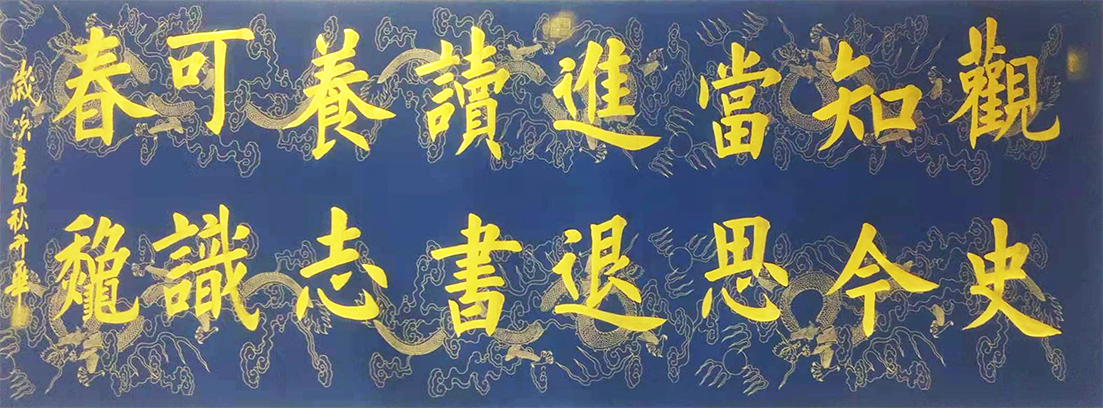 觀史
知今
當思
進退
讀書
養志
可識
春穐
歲次辛丑秋升華